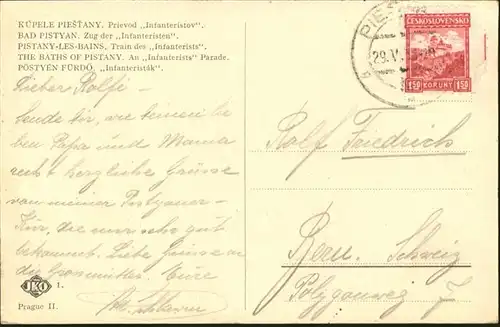 KÚPELE PIEŠŤANY. Prievod „Infanteristov".
BAD PISTYAN. Zug der „Infanteristen".
PISTANY-LES-BAINS, Train des „Infanterists".
THE BATHS OF PISTANY. An „Infanterists" Parade.
PÖSTYÉN FÜRDŐ. „Infanteristák".
Lieber Rolfi –
Sende dir, wie deinen lie
ben Papa und Mama
recht herzliche Grüsse
von meiner Pistyaner-
Kur, die mir sehr gut
bekommt. Liebe Grüsse an
die Grossmutter. Eure
JKO
1.
Prague II.
PIEŠŤANY
29.V
ČESKOSLOVENSKO
1·50 KORUNY 1·50
Rolf Friedrich
Bern. Schweiz
Polygonweg 7